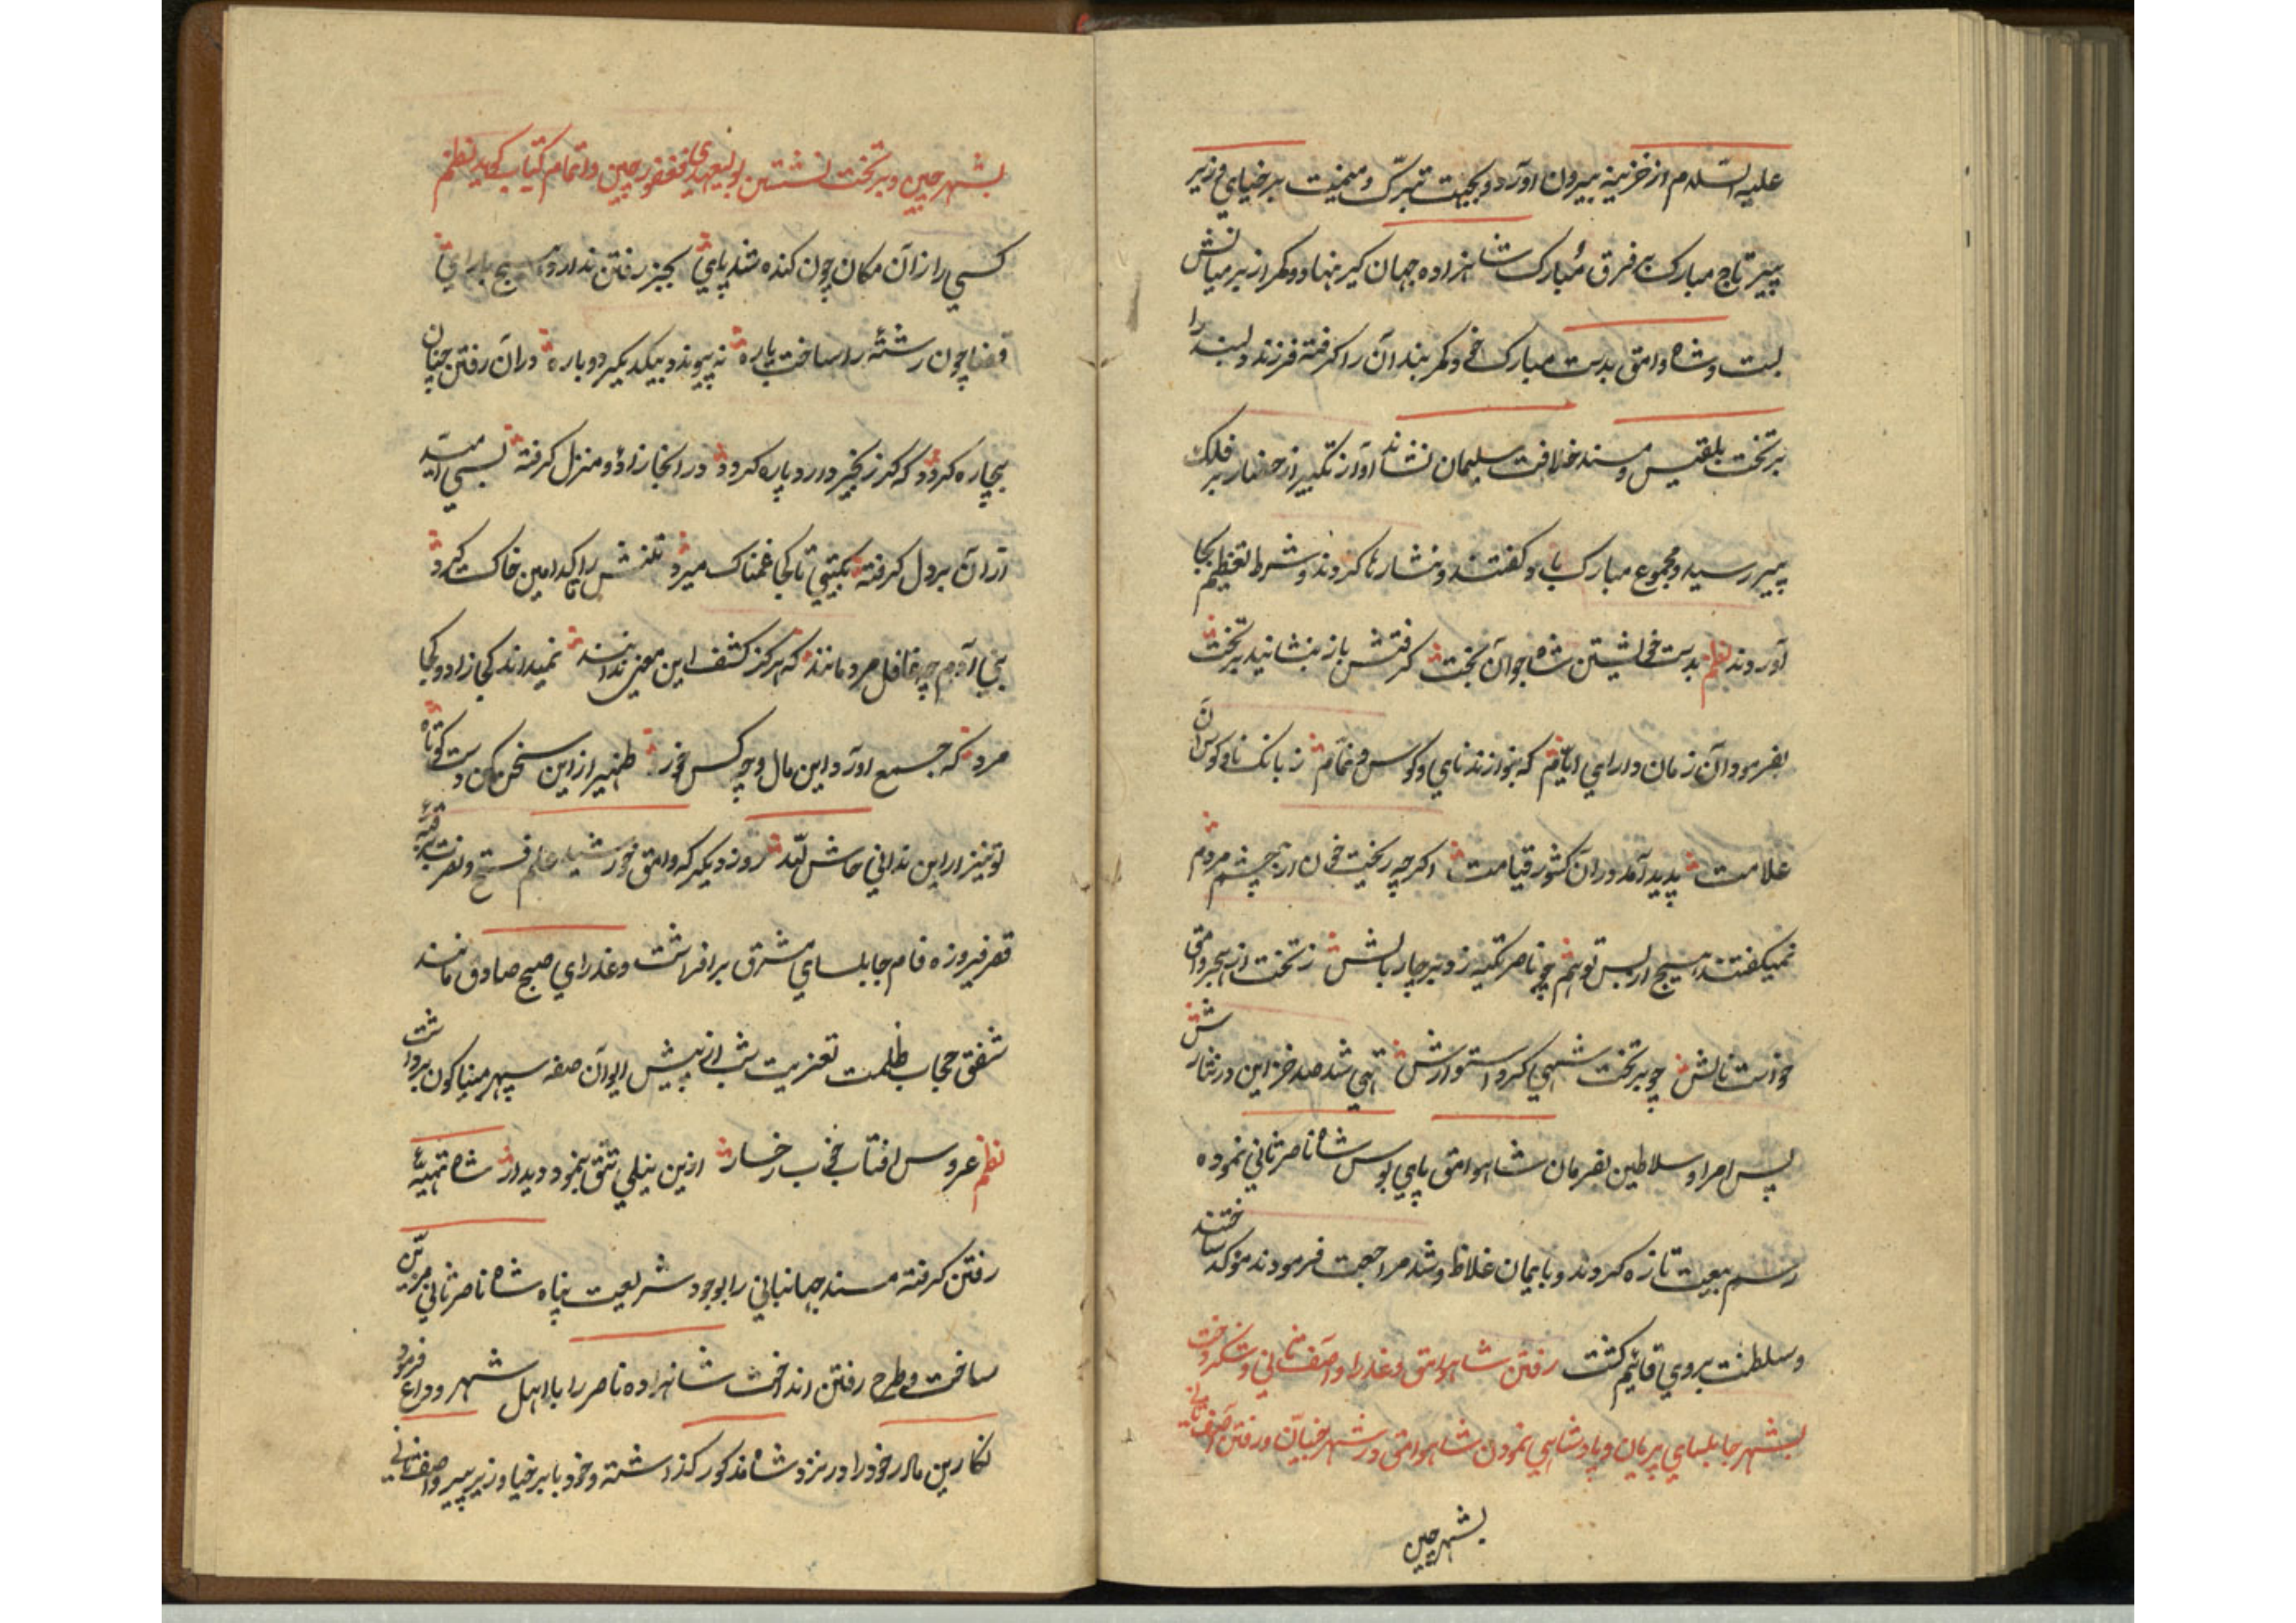 علیه السّلام از خزینه بیرون آورد و بجهت تبرّک و میمنت برخیای وزیر
پیر تاج مبارک بر فرق مبارک شاهزاده جهان کیر نهاد و کمر از بر میانش
بست و شاه وامق بدست مبارک خود کمربند آن را کرفته فرزند دلبند را
بر تخت بلقیس و مسند خلافت سلیمان نشاند آواز تکبیر از حضار بر فلک
پیر رسید و مجموع مبارک باد کفتند و نثارها کردند و شرط تعظیم بجا
آوردند نظم بدست خویشتن شاه جوان بخت کرفتش باز بنشانید بر تخت
بفرمود آن زمان دارای ایام که بنوازند نای و کوس و خام ز بانک نای و کوس آن
علامت پدید آمد در آن کشور قیامت اکرچه ریخت خون از چشم مردم
نمیکفتند هیچ از بس توهم چو ناصر تکیه زد بر چار بالش ز تخت از هجر وامق
خواست نالش چو بر تخت شهی کرد استوارش تهی شد صد خزاین در نثارش
پس امرا و سلاطین بفرمان شاه وامق پای بوس شاه ناصر ثانی نموده
رسم بیعت تازه کردند و بایمان غلاظ و شد مراجعت فرمودند موکد ساختند
و سلطنت بر وی قایم کشت رفتن شاه وامق و عذرا و آصف ثانی و شکردخت
بشهر جابلسای پریان و پادشاهی نمودن شاه وامق در شهر خبیان و رفتن آصف ثانی
بشهر چین
بشهر چین و بر تخت نشستن بولیعهدی فغفور چین و اتمام کتاب کوید نظم
کسی را زان مکان چون کنده شد پای بجز رفتن ندارد هیچ یارای
قضا چون رشته را ساخت پاره نه پیوندد بیکدیکر دوباره در آن رفتن چنان
بیچاره کردد که کر زنجیر دارد پاره کردد در انجا زاد و منزل کرفته بسی امید
از آن بر دل کرفته بکیتی تا کجا غمناک میرد تنش را کدامین خاک کیرد
بنی آدم چه غافل مردمانند که هرکز کشف این معنی ندانند نمیداند کجا زاد و کجا
مرد که جمع آورد این مال و چه کس خورد ظهیر از این سخن کن دست کوتاه
تو نیز ار این ندانی حاش لله روز دیکر که وامق خورشید علم فتح و نصرت بر قبه
قصر فیروزه فام جابلسای مشرق برافراشت و عذرای صبح صادق مانند
شفق حجاب ظلمت تعزیت شب از پیش ایوان صفه سپهر میناکون برداشت
نظم عروس افتاب خوب رخسار ازین نیلی تتق بنمود دیدار شاه تهیئه
رفتن کرفته مسند جهانبانی را بوجود شریعت پناه شاه ناصر ثانی مزیّن
ساخت و طرح رفتن انداخت شاهزاده ناصر را با اهل شهر وداع فرمود
نکارین مادر خود را در نزد شاه مذکور کذاشته و خود با برخیا وزیر پیر و آصف ثانی